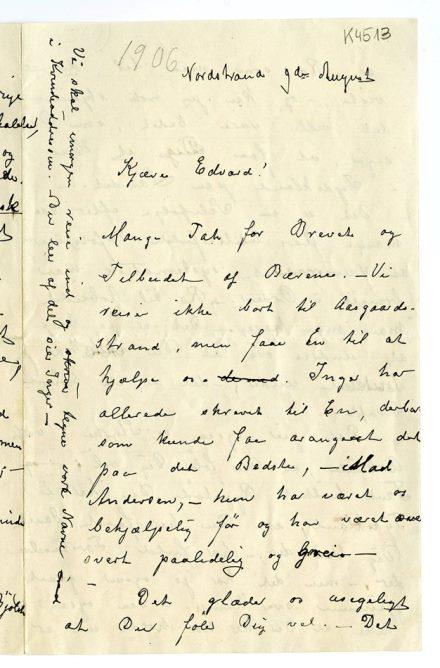 K4513
1906
Nordstrand 9de August
Kjære Edvard!
Mange Tak for Brevet og
Tilbudet af Bærene. – Vi
reiser ikke bort til Aasgaards-
strand, men faae En til at
hjælpe os. Inger har
allerede skrevet til En, derborte
som kunde faae arangeret det
paa det Bedste, – Mad
Andersen, – hun har været os
behjælpelig før og har været
svert paalidelig og Grei –
Det glæder os usegeligt
at Du føler Dig vel. – Det
Vi skal imorgen reise ind og tegne vort Navne
i Kondoladressen. – Du leer af det sier Inger –